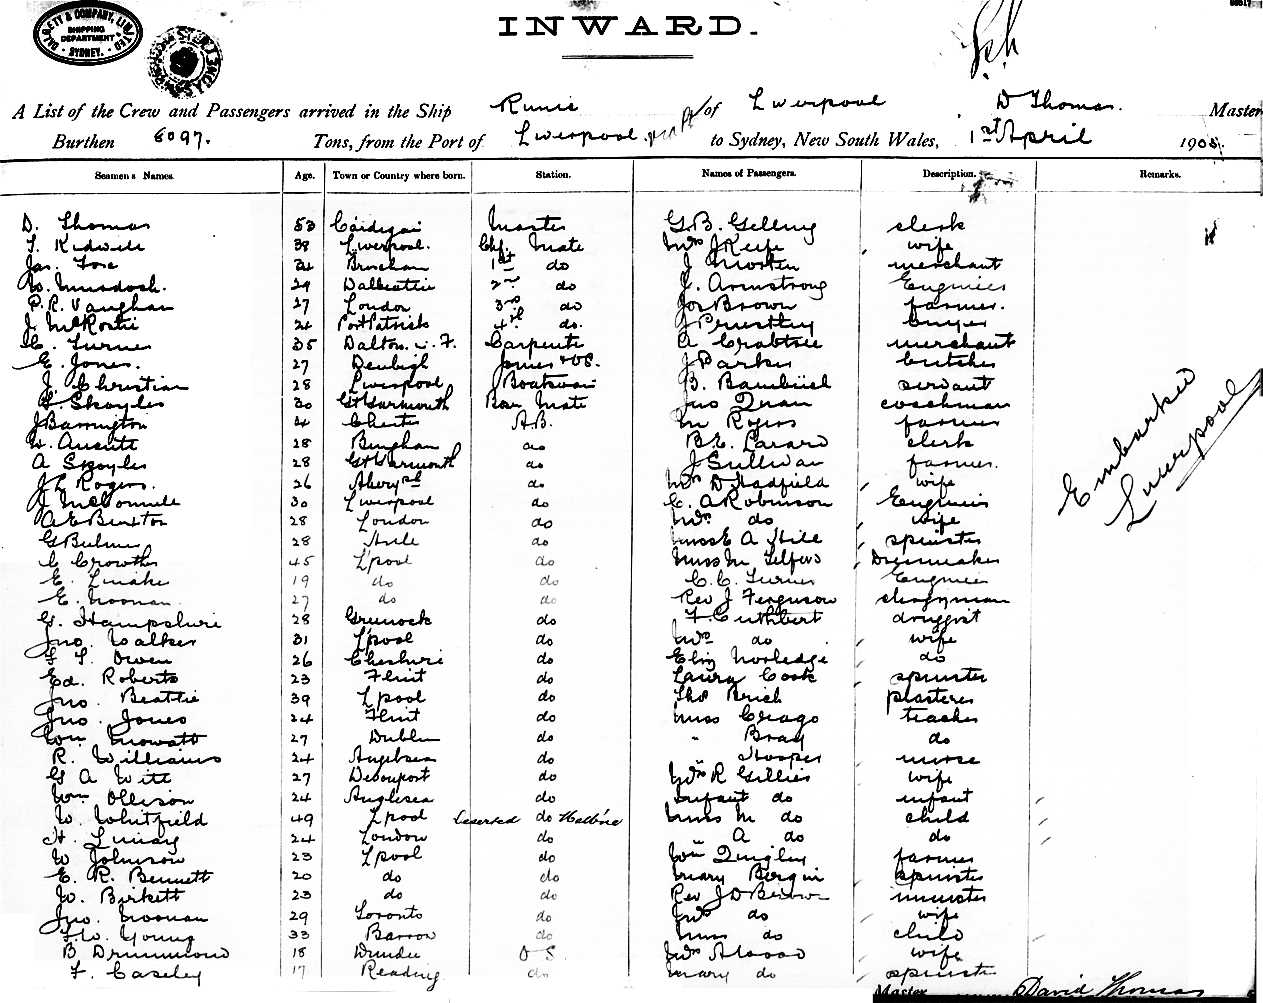 DALGETY & COMPANY, LIMITED
SHIPPING DEPARTMENT
SYDNEY.
INWARD.
A List of the Crew and Passengers arrived in the Ship Runic of Liverpool D Thomas. Master
Burthen 8097. Tons, from the Port of Liverpool to Sydney, New South Wales, 1st April 190
Seamen's Names. Age. Town or Country where born. Station. Names of Passengers. Description. Remarks.
D. Thomas 53 Cardigan Master G.B. Gelling clerk
38 Liverpool. Chf. Mate Mrs J Keife wife
Jas. 1st do J merchant
W. Murdoch. 29 Dalbeattie 2nd do J. Armstrong Engineer
P.R. Vaughan 27 London 3rd do Jos Brown farmer.
J McRostie Port Patrick 4th do. J Priestley buyer
C. Turner 35 Dalton. i. F. Carpenter A Crabtree merchant
E. Jones. 27 Denbigh Joiner J Parker butcher
J. Christian 28 Liverpool Boatswain B. servant
Skoyles 30 Gt Yarmouth Bsn Mate Jno Quan coachman
J Barrington Chester A.B. M Rogers farmer
28 Bingham do clerk
A Skoyles 28 Gt Yarmouth do J Sullivan farmer.
Rogers. 26 do Mrs D Hadfield wife
J McConnell 30 Liverpool do E. A Robinson Engineer
A E Buxton 28 London do Mrs do wife
G Bulmer 28 do Miss E A Hill spinster
C Crowther 45 L'pool do Miss M Telfers Dressmaker
E. 19 do do C. C. Turner Engineer
E. Noonan 27 do do Rev J Ferguson clergyman
G. Hampshire 28 Greenock do F. Cuthbert druggist
Jno. Walker 31 L'pool do Mrs do wife
Owen 26 Cheshire do do
Ed. Roberts 23 Flint do Laura Cook spinster
Jno. Beattie 39 L'pool do Thos plasterer
Jno. Jones 24 Flint do Miss Crago teacher
Wm. Mowatt 27 Dublin do " Bray do
R. Williams 24 Anglesea do " Hooper nurse
G A Witt 27 Devonport do Mrs R Gillies wife
Wm Ollison 24 Anglesea do Infant do infant
W. Whitfield 49 L'pool Deserted do Melb'ne Miss M do child
H. 24 London do " A do do
W Johnson 23 L'pool do Wm Quigley farmer
E. R. Bennett 20 do do Mary Bergin spinster
W. Birkett 23 do do Rev J D minister
Jno. Noonan 29 Toronto do Mrs do wife
Young 33 Barrow do Miss do child
B Drummond 18 Dundee O S. Mrs wife
F. Caseley 17 Reading do Mary do spinster
Embarked
Liverpool
Master David Thomas